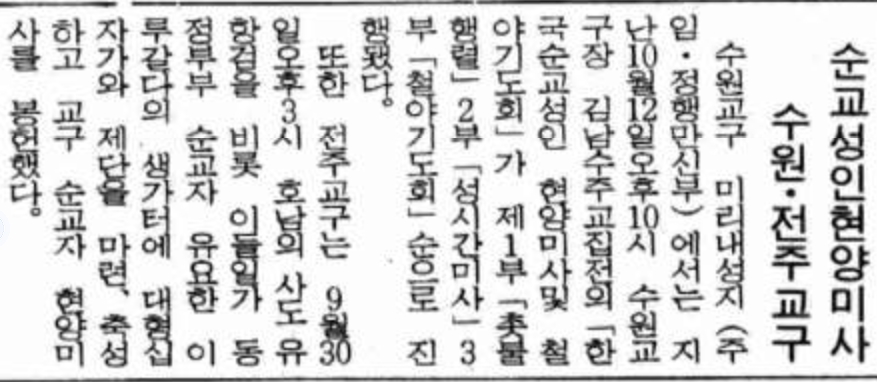 순교성인현양미사
수원·전주교구
수원교구 미리내성지 (주
임·정행만신부)에서는 지
난10월12일오후10시 수원교
구장 김남수주교집전의 「한
국순교성인 현양미사및 철
야기도회」가 제1부「촛불
행렬」2부「성시간미사」3
부「철야기도회」순으로 진
행됐다.
또한 전주교구는 9월30
일오후3시 호남의 사도유
항검을 비롯 이들일가 동
정부부 순교자 유요한 이
루갈다의 생가터에 대형십
자가와 제단을 마련, 축성
하고 교구 순교자 현양미
사를 봉헌했다.